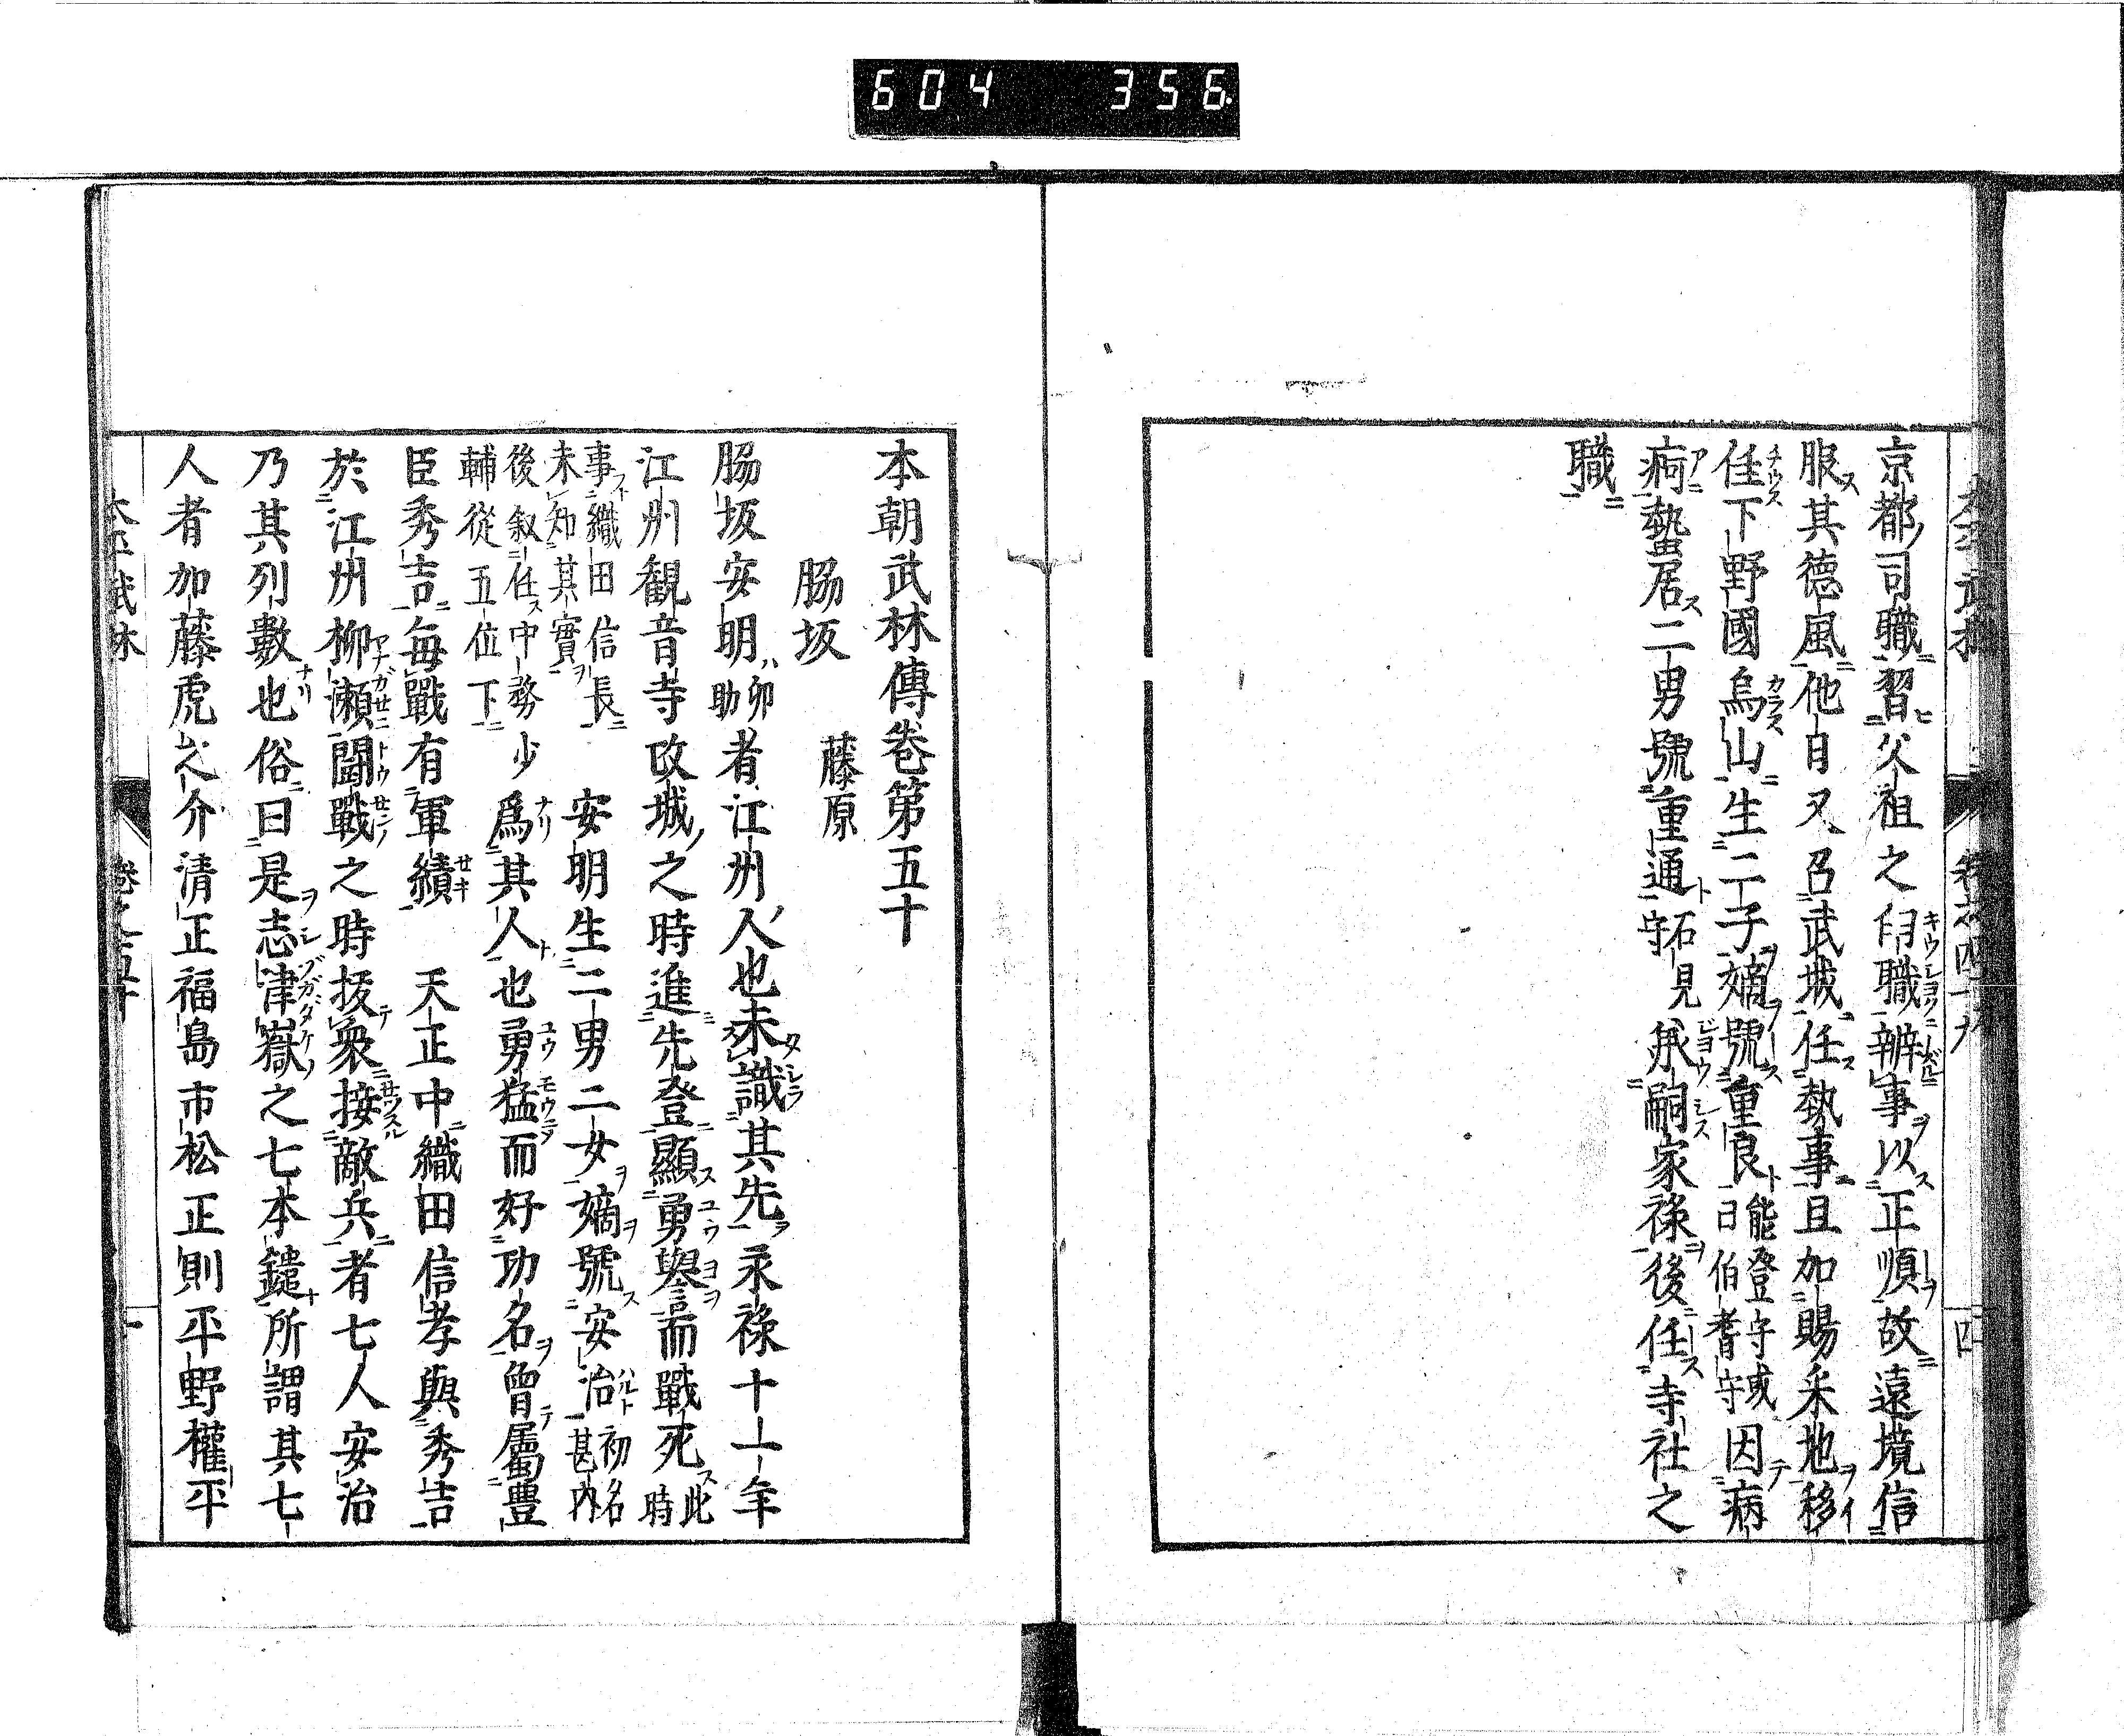 604 356
京都司職習父祖之臼職辦事以正順故遠境信
服其德風他日又召武城任執事且加賜釆地移
住下野國烏山生二子嫡號重良能登守或曰伯耆守因病
痾蟄居二男號重通石見守承嗣家祿後任寺社之
職
卷之四十九
四
本朝武林傳卷第五十
脇坂 藤原
脇坂安明卯助者江州人也未識其先永祿十一年
江州観音寺攻城之時進先登顯勇譽而戰死此時
事織田信長未知其實安明生二男二女嫡號安治初名甚内
後叙任中務少輔從五位下爲其人也勇猛而好功名曾屬豊
臣秀吉每戰有軍績 天正中織田信孝與秀吉
於江州柳瀬鬪戰之時拔衆接敵兵者七人安治
乃其列數也俗曰是志津嶽之七本鑓所謂其七
人者加藤虎之介清正福島市松正則平野權平
卷之五十